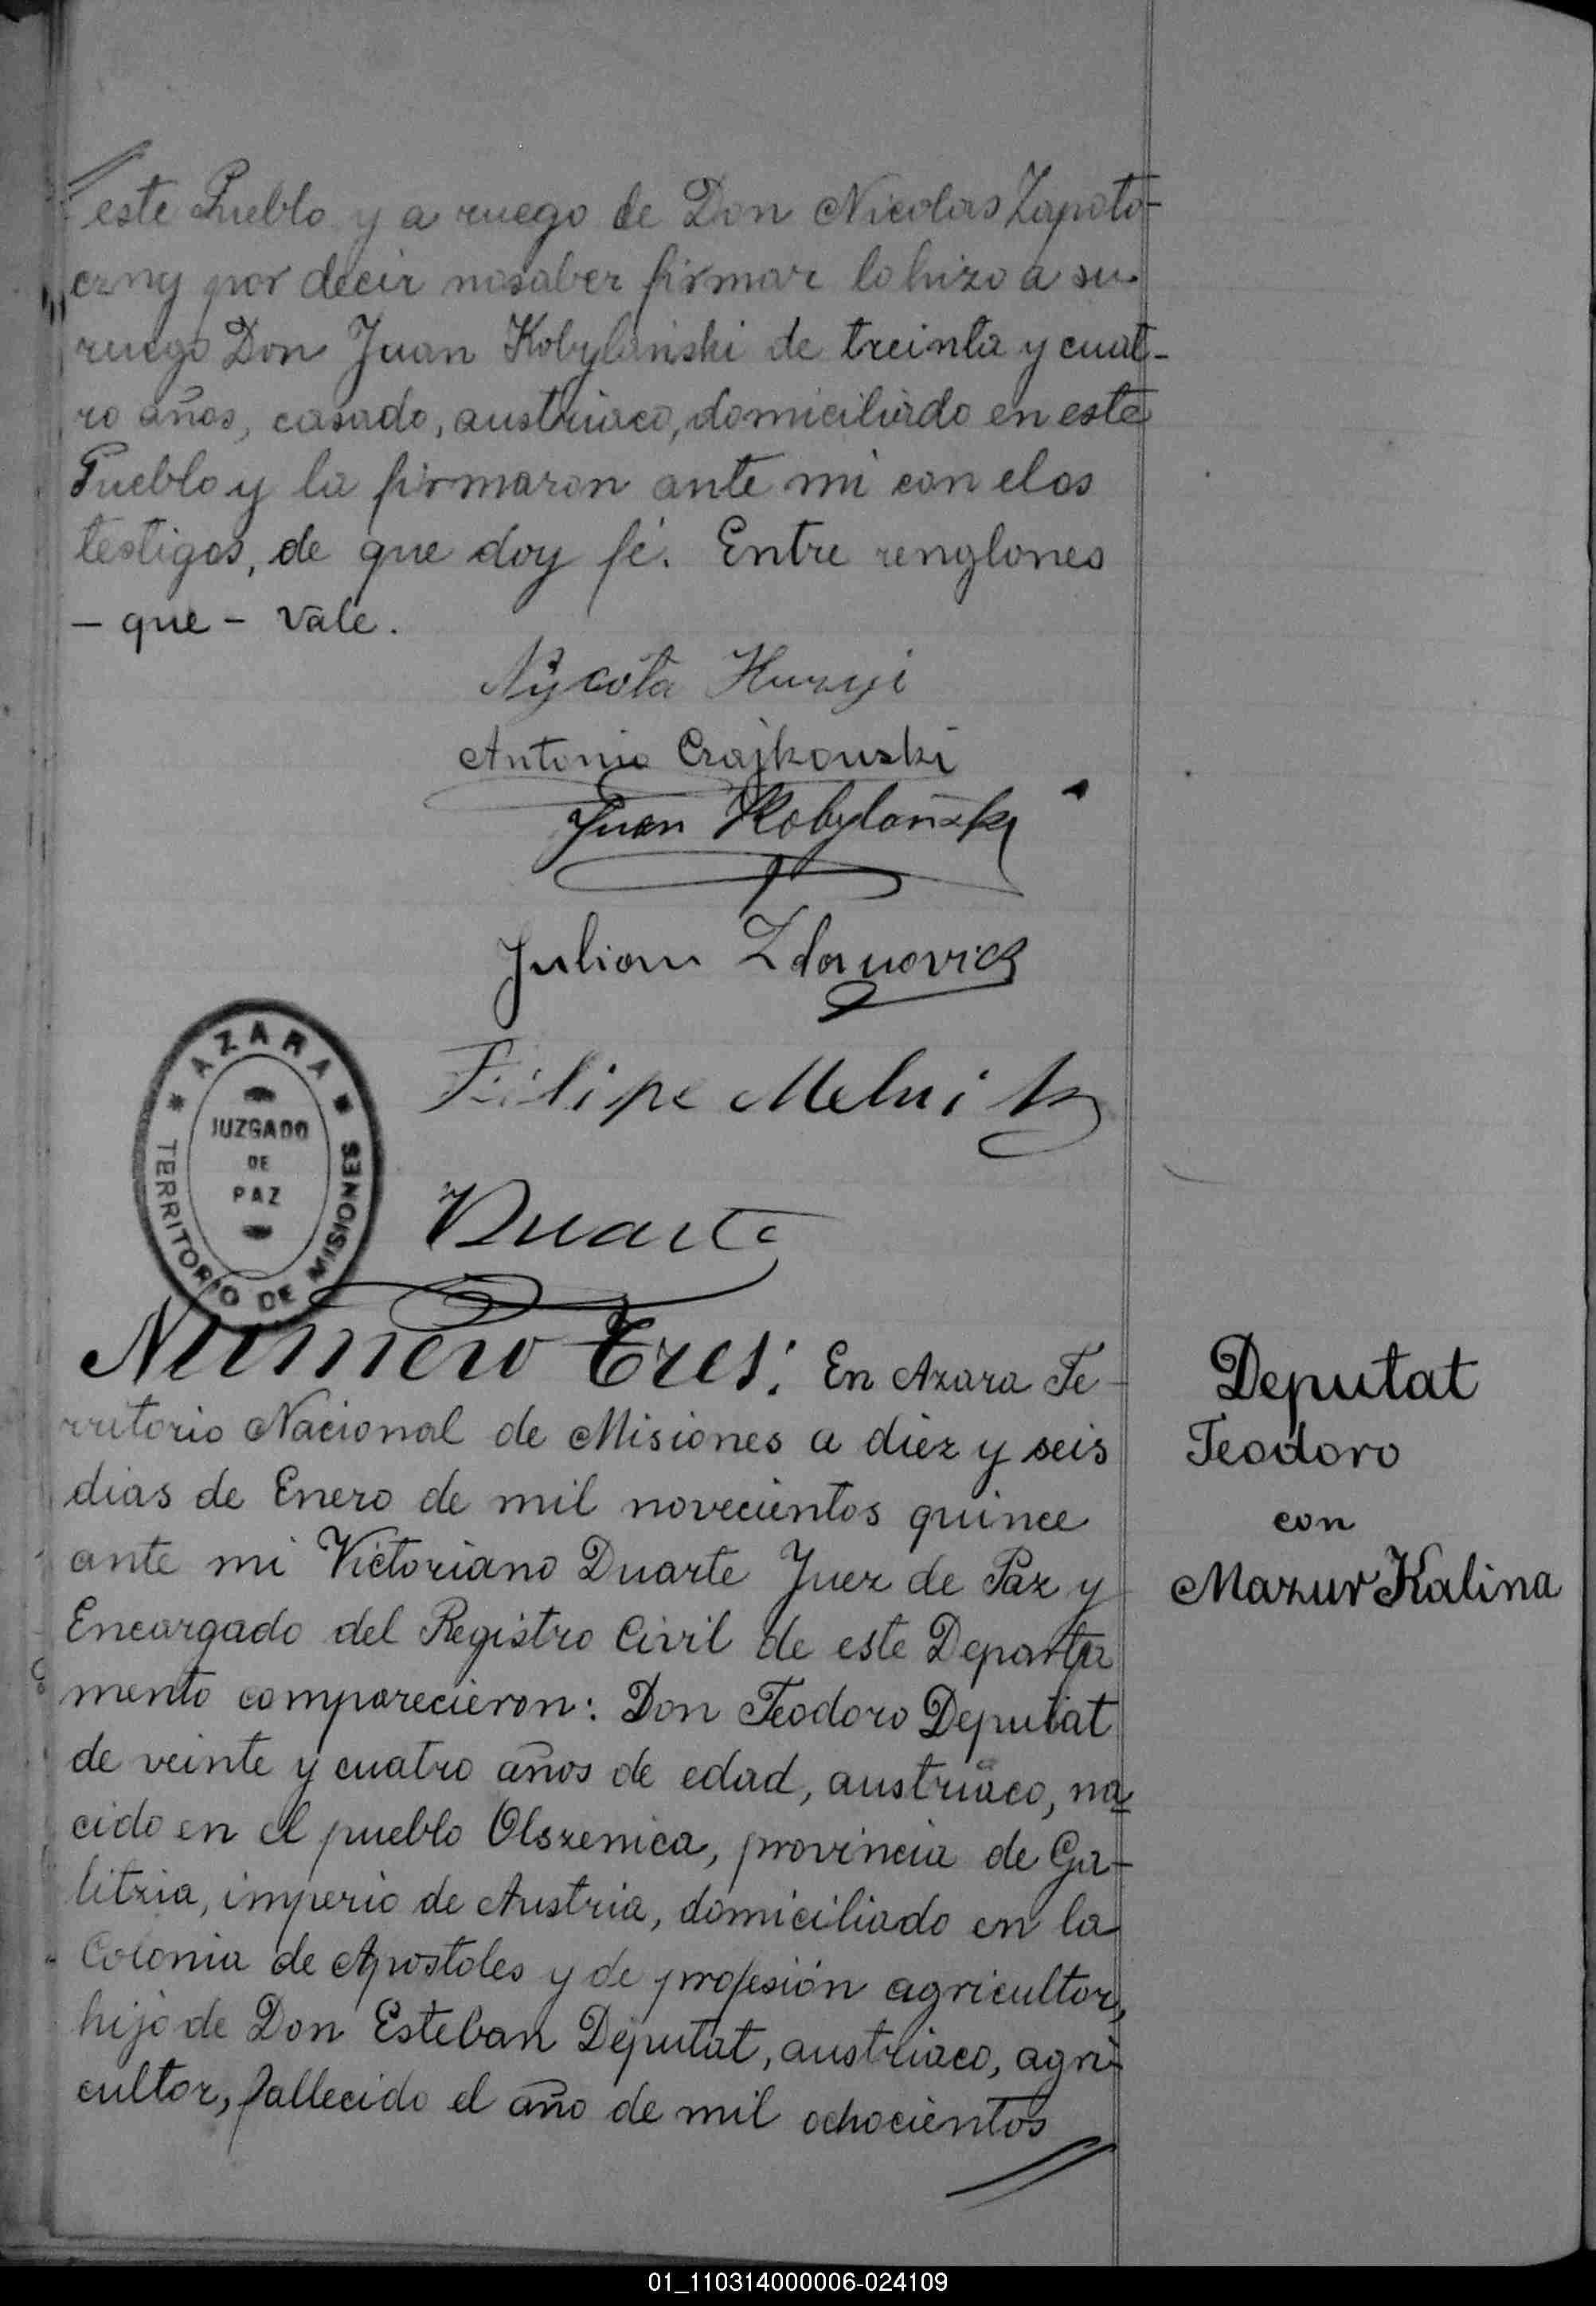 este Pueblo y a ruego de Don Nicolas Zapoto-
czny por decir no saber firmar lo hizo a su
ruego Don Juan Kobylanski de treinta y cuat-
ro años, casado, austriaco, domiciliado en este
Pueblo y la firmaron ante mi con elos
testigos, de que doy fé. Entre renglones
- que - vale.
Nycola Huzyi
Antonio Czajkouski
Juan Kobylański
Julian Zdanovicz
Filipe Melnik
VDuarte
AZARA
JUZGADO
DE
PAZ
TERRITORIO DE MISIONES
Numero Tres: En Azara Te-
rritorio Nacional de Misiones a diez y seis
dias de Enero de mil novecientos quince
ante mi Victoriano Duarte Juez de Paz y
Encargado del Registro Civil de este Departa
mento comparecieron: Don Teodoro Deputat
de veinte y cuatro años de edad, austriaco, na
cido en el pueblo Olszenica, provincia de Ga-
litzia, imperio de Austria, domiciliado en la
Colonia de Apostoles y de profesión agricultor,
hijo de Don Esteban Deputat, austriaco, agri-
cultor, fallecido el año de mil ochocientos
Deputat
Teodoro
con
Mazur Kalina
01_110314000006-024109